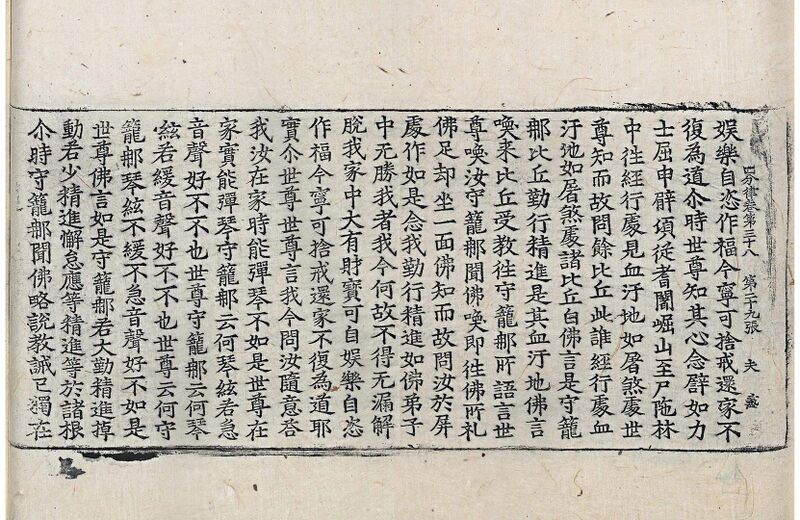 四分律卷第三十八 第二十九張 夫
娛樂自恣作福今寧可捨戒還家不
復為道尒時世尊知其心念譬如力
士屈申臂頃從耆闍崛山至尸陁林
中往經行處見血汙地如屠煞處世
尊知而故問餘比丘此誰經行處血
汙地如屠煞處諸比丘白佛言是守籠
那比丘勤行精進是其血汙地佛言
喚來比丘受教往守籠那所語言世
尊喚汝守籠那聞佛喚即往佛所礼
佛足却坐一面佛知而故問汝於屏
處作如是念我勤行精進如佛弟子
中无勝我者我今何故不得无漏解
脫我家中大有財寶可自娛樂自恣
作福今寧可捨戒還家不復為道耶
實尒世尊世尊言我今問汝隨意荅
我汝在家時能彈琴不如是世尊在
家實能彈琴守籠那云何琴絃若急
音聲好不不也世尊守籠那云何琴
絃若緩音聲好不不也世尊云何守
籠那琴絃不緩不急音聲好不如是
世尊佛言如是守籠那若大勤精進掉
動若少精進懈怠應等精進等於諸根
尒時守籠那聞佛略說教誡已獨在